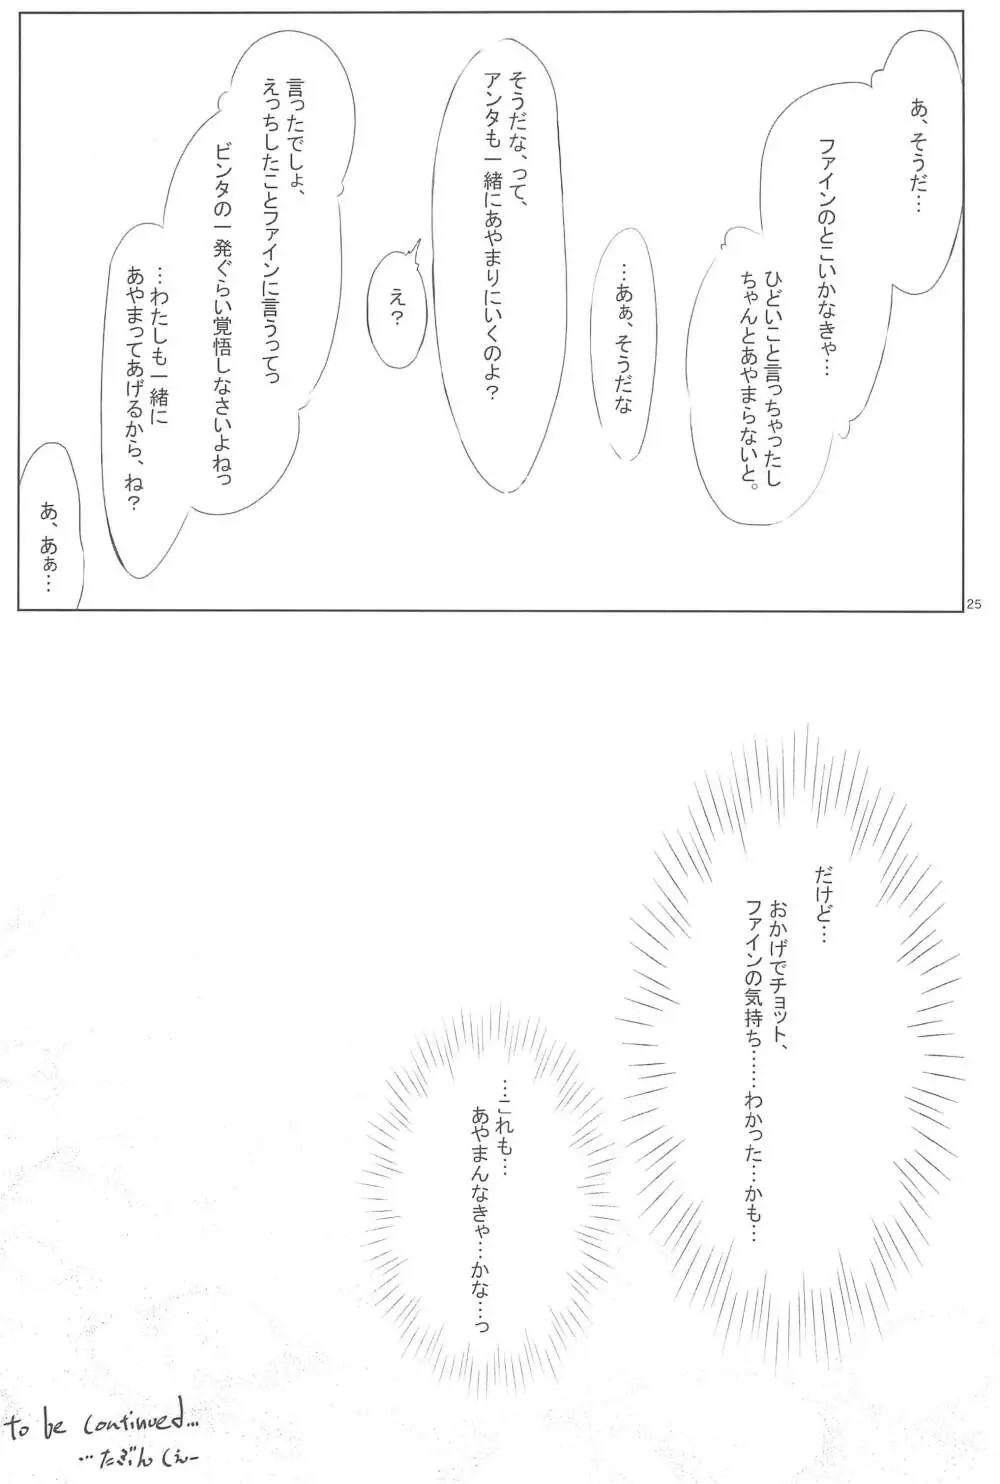 あ、そうだ…
ファインのとこいかなきゃ…
ひどいこと言っちゃったし
ちゃんとあやまらないと。
…あぁ、そうだな
そうだな、って、
アンタも一緒にあやまりにいくのよ？
え？
言ったでしょ、
えっちしたことファインに言うってっ
ビンタの一発ぐらい覚悟しなさいよねっ
…わたしも一緒に
あやまってあげるから、ね？
あ、あぁ…
25
だけど…
おかげでチョット、
ファインの気持ち……わかった…かも…
…これも…
あやまんなきゃ…かな…っ
to be continued...